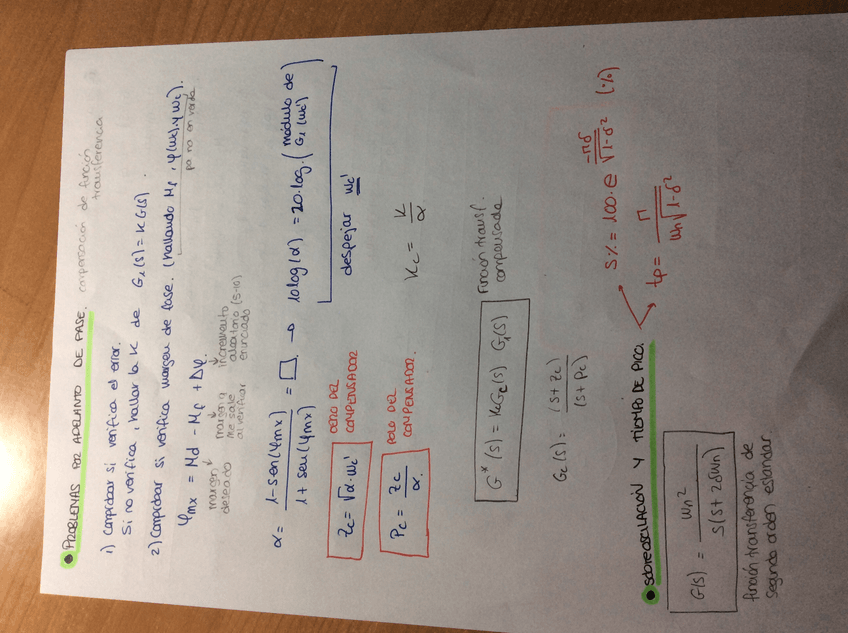 • PROBLEMAS POR ADELANTO DE FASE. compensación de función transferencia
1) Comprobar si verifica el error.
Si no verifica, hallar la K de G₁(s) = K G(s).
2) Comprobar si verifica margen de fase. (hallando Mf, φ(wc) y wc).
ya no en verda
φmx = Md - Mf + Δφ.
margen deseado
margen q me sale al verificar
incremento aleatorio (5-10) enunciado
α = 1 - sen(φmx) / 1 + sen(φmx) = □ → 10 log(α) = 20·log·(módulo de G₁(wc'))
despejar wc'
Zc = √α·wc'
CERO DEL COMPENSADOR
Pc = Zc / α.
POLO DEL COMPENSADOR.
Kc = K / α
G*(s) = Kc Gc(s) G₁(s)
Función transf. compensada
Gc(s) = (s + Zc) / (s + Pc)
• SOBREOSCILACIÓN Y TIEMPO DE PICO.
S% = 100·e^(-πδ / √1-δ²) (·%)
tp = π / wn√1-δ²
G(s) = wn² / s(s + 2δwn)
función transferencia de
segundo orden estandar